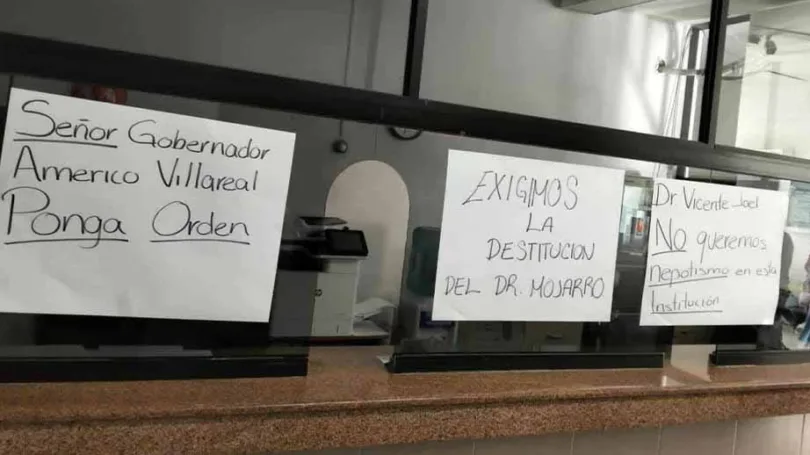 Señor Gobernador
Americo Villareal
Ponga Orden
EXIGIMOS
LA
DESTITUCION
DEL DR. MOJARRO
Dr Vicente Joel
NO queremos
nepotismo en esta
Institución